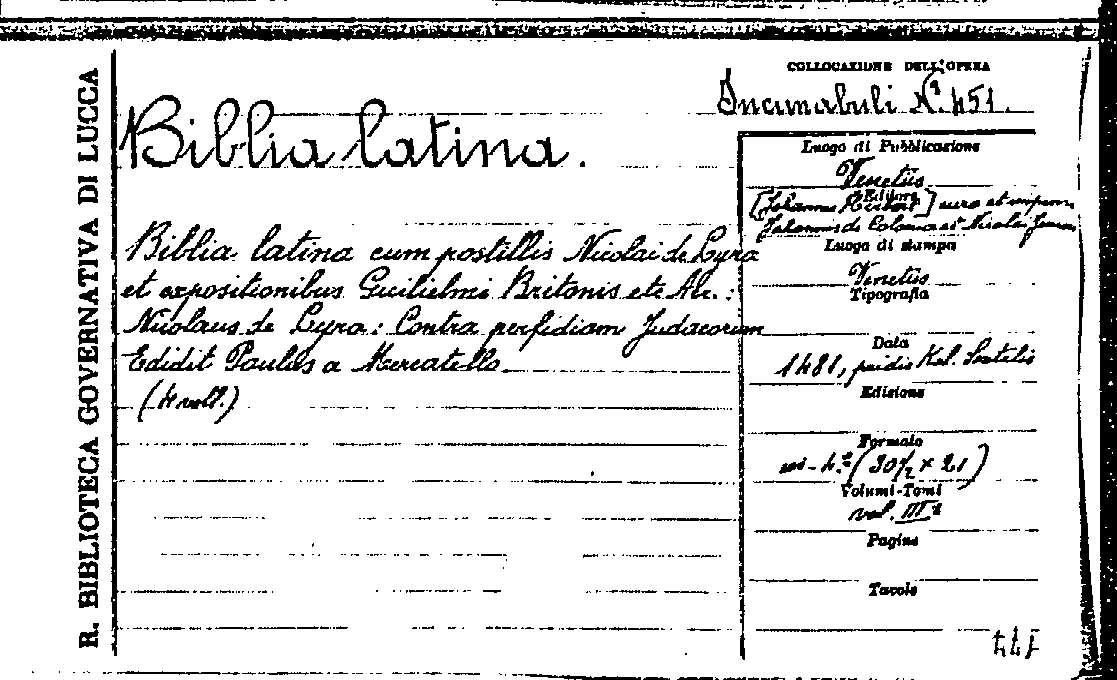 R. BIBLIOTECA GOVERNATIVA DI LUCCA
COLLOCAZIONE DELL'OPERA
Incunabuli N.º 451.
Biblia latina.
Biblia latina cum postillis Nicolai de Lyra
et expositionibus Guilielmi Britonis etc Al. :
Nicolaus de Lyra : Contra perfidiam Judaeorum
Edidit Paulus a Mercatello.
(4 voll.)
Luogo di Pubblicazione
Venetiis
Editore
[Johannes Herbort] cura et impen.
Johannis de Colonia et Nicolai Jenson
Luogo di stampa
Venetiis
Tipografia
Data
1481, pridie Kal. Sextilis
Edizione
Formato
in-4.º (30½ × 21)
Volumi-Tomi
vol. III.º
Pagine
Tavole